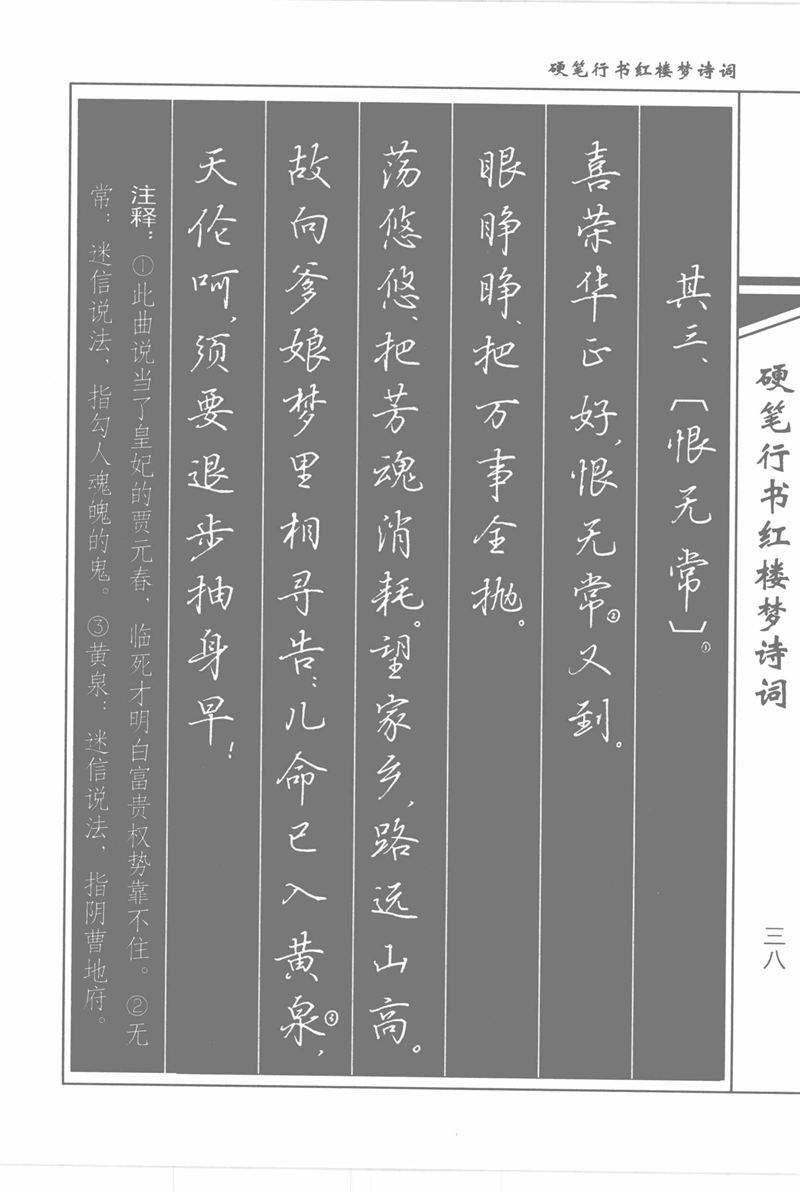 硬笔行书红楼梦诗词
硬笔行书红楼梦诗词
三八
其三、〔恨无常〕①
喜荣华正好,恨无常②又到。
眼睁睁、把万事全抛。
荡悠悠、把芳魂消耗。望家乡,路远山高。
故向爹娘梦里相寻告:儿命已入黄泉③,
天伦呵,须要退步抽身早!
注释:①此曲说当了皇妃的贾元春,临死才明白富贵权势靠不住。②无
常:迷信说法,指勾人魂魄的鬼。③黄泉:迷信说法,指阴曹地府。